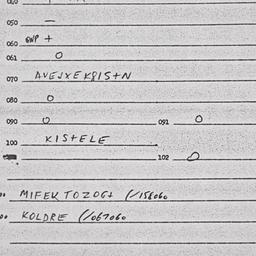 050 —
060 GNP +
061 O
070 AVEJXEKRISTN
080 O
090 O 091 O
100 KISTELE
102 O
MIFEK TOZOGI (/156060
KOLDRE (/067060